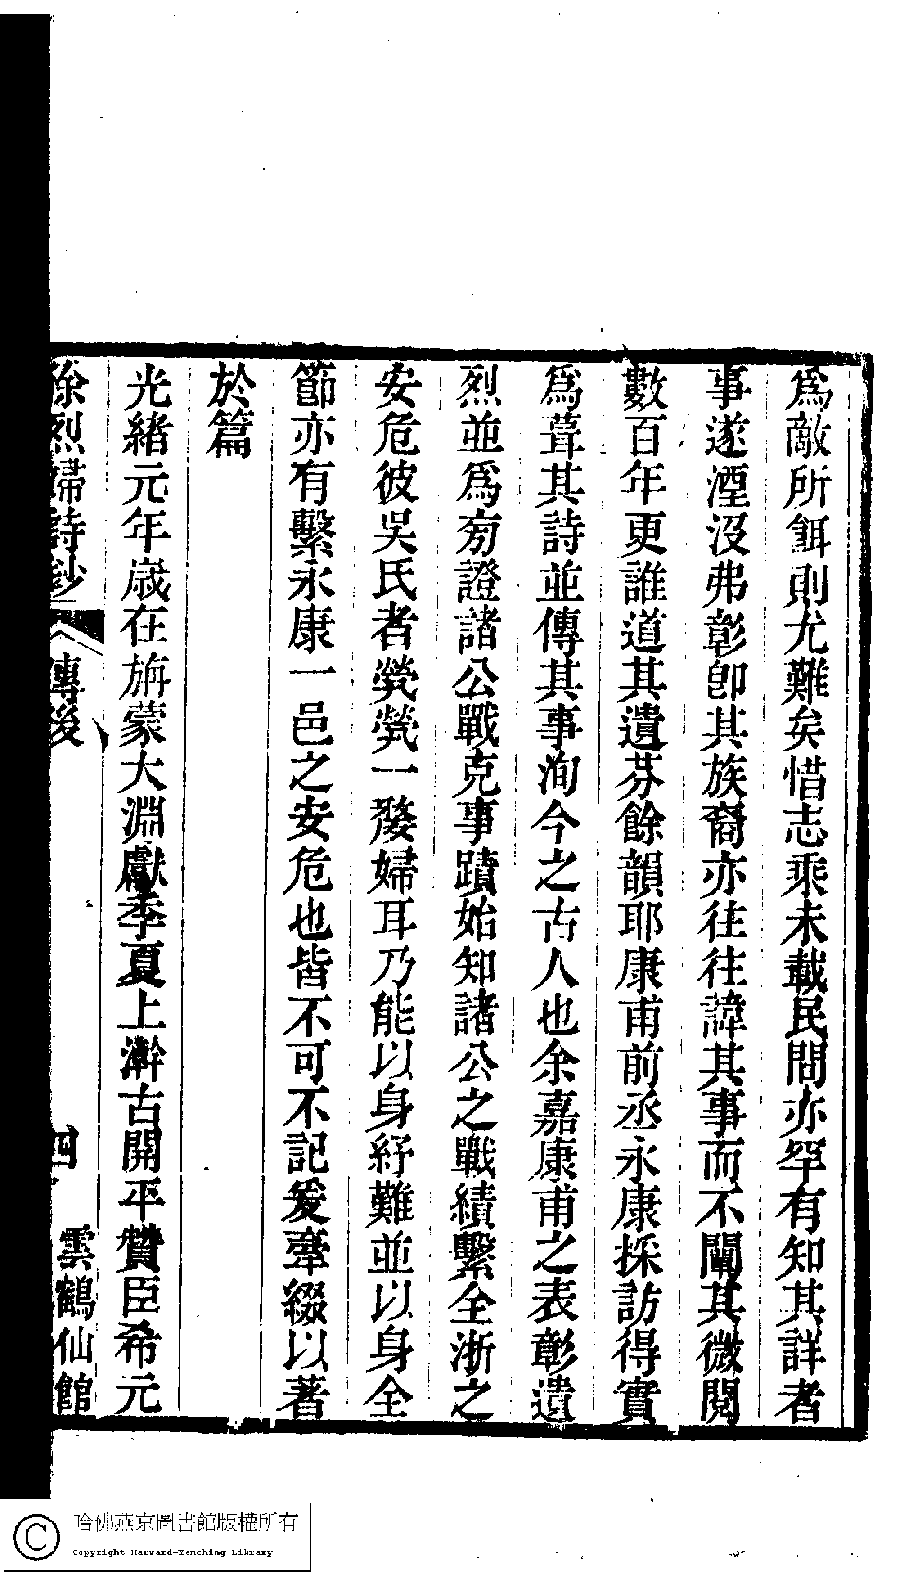 為敵所餌則尤難矣惜志乘未載民間亦罕有知其詳者
事遂湮沒弗彰卽其族裔亦往往諱其事而不闡其微閱
數百年更誰道其遺芬餘韻耶康甫前丞永康採訪得實
為葺其詩並傳其事洵今之古人也余嘉康甫之表彰遺
烈並為旁證諸公戰克事蹟始知諸公之戰績繫全浙之
安危彼吳氏者煢煢一嫠婦耳乃能以身紓難並以身全
節亦有繫永康一邑之安危也皆不可不記爰牽綴以著
於篇
光緒元年歲在旃蒙大淵獻季夏上澣古開平贊臣希元
徐烈婦詩鈔
傳後
四
雲鶴仙館
哈佛燕京圖書館版權所有
Copyright Harvard-Yenching Library